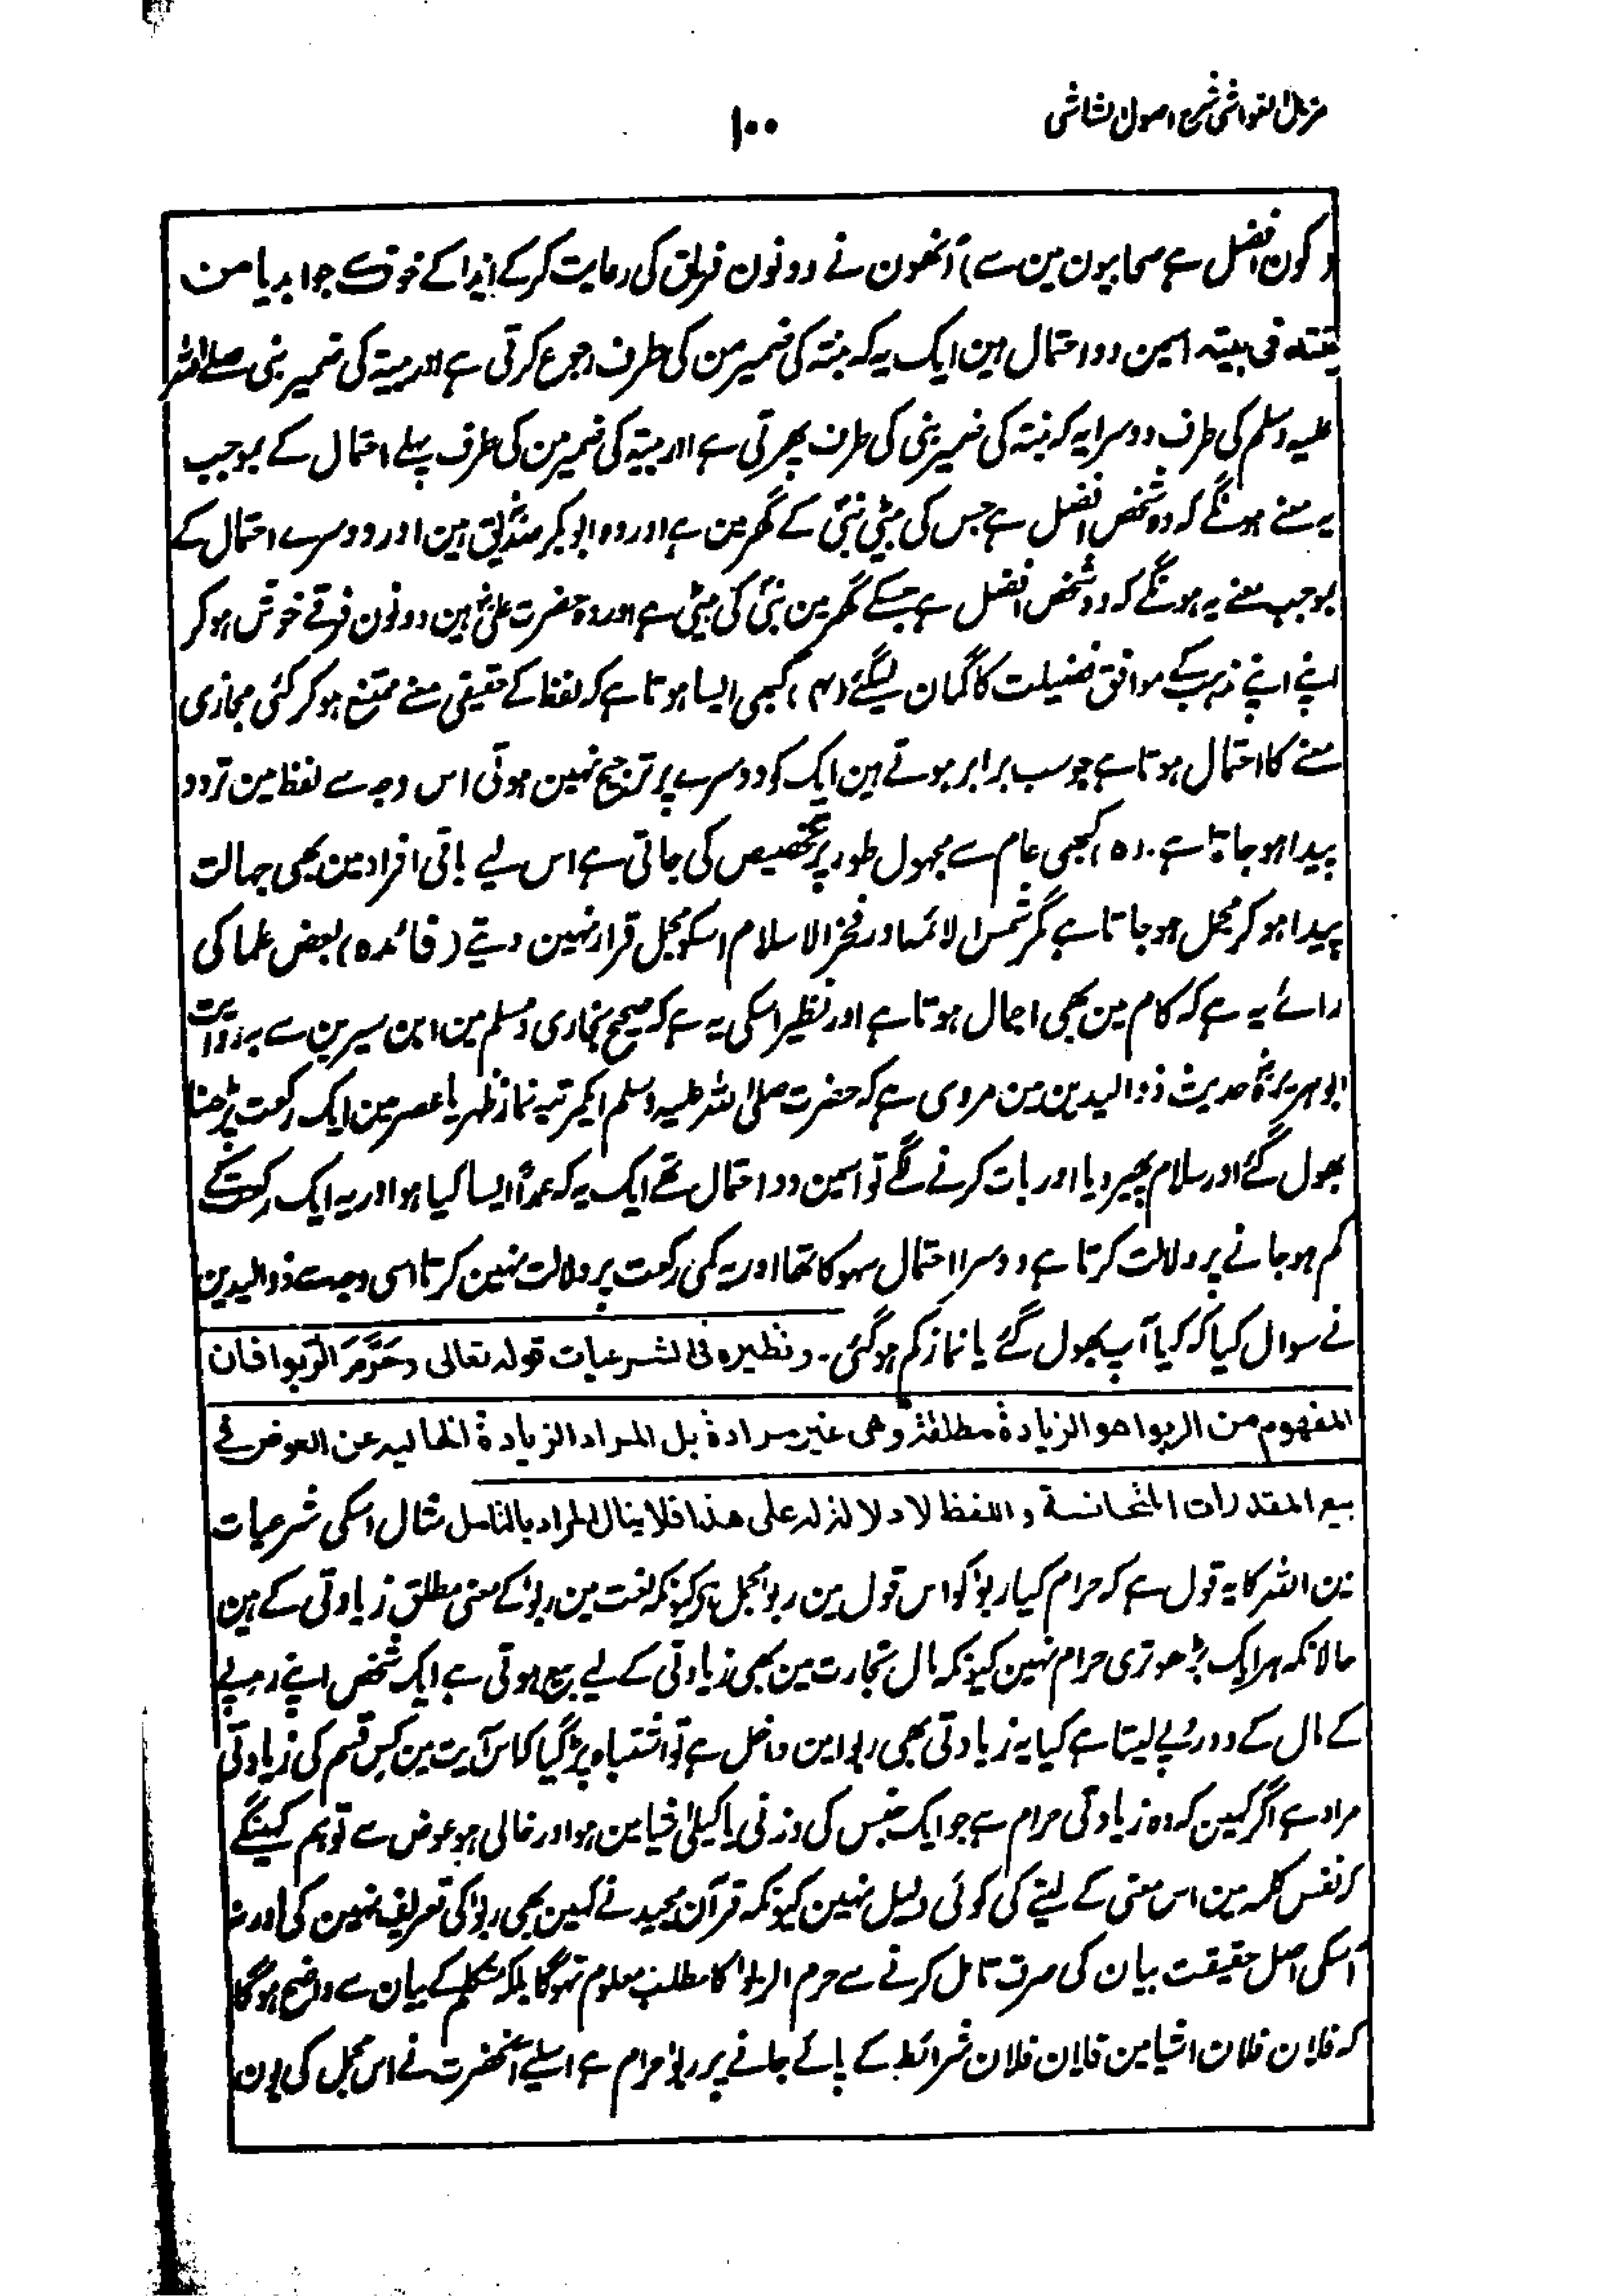 مزیل الغواشی شرح اصول الشاشی
۱۰۰
کون افضل ہے صحابیون مین سے) اُنھون نے دونون فریق کی رعایت کرکے ایذا کے خوف سے جواب دیا من
بنته فی بیته اسمین دو احتمال ہین ایک یہ کہ بنتہ کی ضمیر من کی طرف رجوع کرتی ہے اور بیتہ کی ضمیر نبی صلے اللہ
علیہ وسلم کی طرف دوسرا یہ کہ بنتہ کی ضمیر نبی کی طرف پھرتی ہے اور بیتہ کی ضمیر من کی طرف پہلے احتمال کے بموجب
یہ معنے ہونگے کہ وہ شخص افضل ہے جس کی بیٹی نبیؐ کے گھر مین ہے اور وہ ابو بکر صدیقؓ ہین اور دوسرے احتمال کے
بموجب معنے یہ ہونگے کہ وہ شخص افضل ہے جسکے گھر مین نبیؐ کی بیٹی ہے اور وہ حضرت علیؓ ہین دونون فرقے خوش ہو کر
اپنے اپنے مذہب کے موافق فضیلت کا گمان لیگئے (۴) کبھی ایسا ہوتا ہے کہ لفظ کے حقیقی معنے ممتنع ہو کر کئی مجازی
معنے کا احتمال ہوتا ہے جو سب برابر ہوتے ہین ایک کو دوسرے پر ترجیح نہین ہوتی اس وجہ سے لفظ مین تردد
پیدا ہو جاتا ہے۔ (۵) کبھی عام سے مجہول طور پر تخصیص کی جاتی ہے اس لیے باقی افراد مین بھی جہالت
پیدا ہو کر مجمل ہو جاتا ہے مگر شمس الائمہ اور فخر الاسلام اسکو مجمل قرار نہین دیتے (فائدہ) بعض علما کی
رائے یہ ہے کہ کام مین بھی اجمال ہوتا ہے اور نظیر اسکی یہ ہے کہ صحیح بخاری و مسلم مین ابن سیرین سے بہ روایت
ابو ہریرہؓ حدیث ذوالیدین مین مروی ہے کہ حضرت صلی اللہ علیہ وسلم ایکمرتبہ نماز ظہر یا عصر مین ایک رکعت پڑھنا
بھول گئے اور سلام پھیر دیا اور بات کرنے لگے تو اسمین دو احتمال تھے ایک یہ کہ عمداً ایسا کیا ہو اور یہ ایک رکعت کے
کم ہو جانے پر دلالت کرتا ہے دوسرا احتمال سہو کا تھا اور یہ کمی رکعت پر دلالت نہین کرتا اسی وجہ سے ذوالیدین
نے سوال کیا کہ کیا آپ بھول گئے یا نماز کم ہو گئی۔ ونظیره فی الشرعیات قوله تعالی وَحَرَّمَ الرِّبٰوا فان
المفهوم من الربوا هو الزیادة مطلقة وهی غیر مرادة بل المراد الزیادة الخالیه عن العوض فی
بیع المقدرات المتجانسة واللفظ لا دلالة له علی هذا فلا ینال المراد بالتامل مثال اسکی شرعیات
مین اللہ کا یہ قول ہے کہ حرام کیا ربوٰ کو اس قول مین ربوٰ مجمل ہے کیونکہ لغت مین ربوٰ کے معنی مطلق زیادتی کے ہین
حالانکہ ہر ایک بڑھوتری حرام نہین کیونکہ مال تجارت مین بھی زیادتی کے لیے بیع ہوتی ہے ایک شخص اپنے روپے
کے مال کے دو روپے لیتا ہے کیا یہ زیادتی بھی ربوا مین داخل ہے تو اشتباہ پڑ گیا کہ اس آیت مین کس قسم کی زیادتی
مراد ہے اگر کہین کہ وہ زیادتی حرام ہے جو ایک جنس کی وزنی یا کیلی اشیا مین ہو اور خالی ہو عوض سے تو ہم کہینگے
کہ نفس کلمہ مین اس معنی کے لینے کی کوئی دلیل نہین کیونکہ قرآن مجید نے کہین بھی ربوٰ کی تعریف نہین کی اور نہ
اُسکی اصل حقیقت بیان کی صرف تامل کرنے سے حرم الربوٰ کا مطلب معلوم نہوگا بلکہ متکلم کے بیان سے واضح ہوگا
کہ فلان فلان اشیا مین فلان فلان شرائط کے پائے جانے پر ربوٰ حرام ہے اسلیے آنحضرت نے اس مجمل کی یون